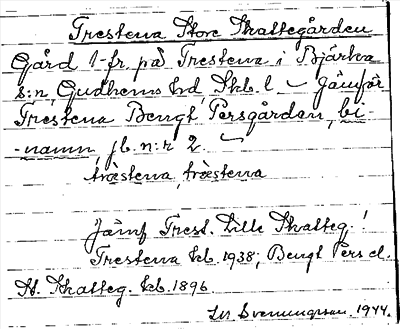 Trestena Stora Skattegården
Gård 1-fr. på Trestena i Bjärka
s:n, Gudhems hd Skb. l. – Jämför
Trestena Bengt Persgården, bi-
-namn, jb. n:r 2.
træstena, træstena
Jämf Trest. Lille Skatteg. !
Trestena kb. 1938; Bengt Pers el.
St. Skatteg. kb. 1896.
Ivr. Svenungsson. 1944.